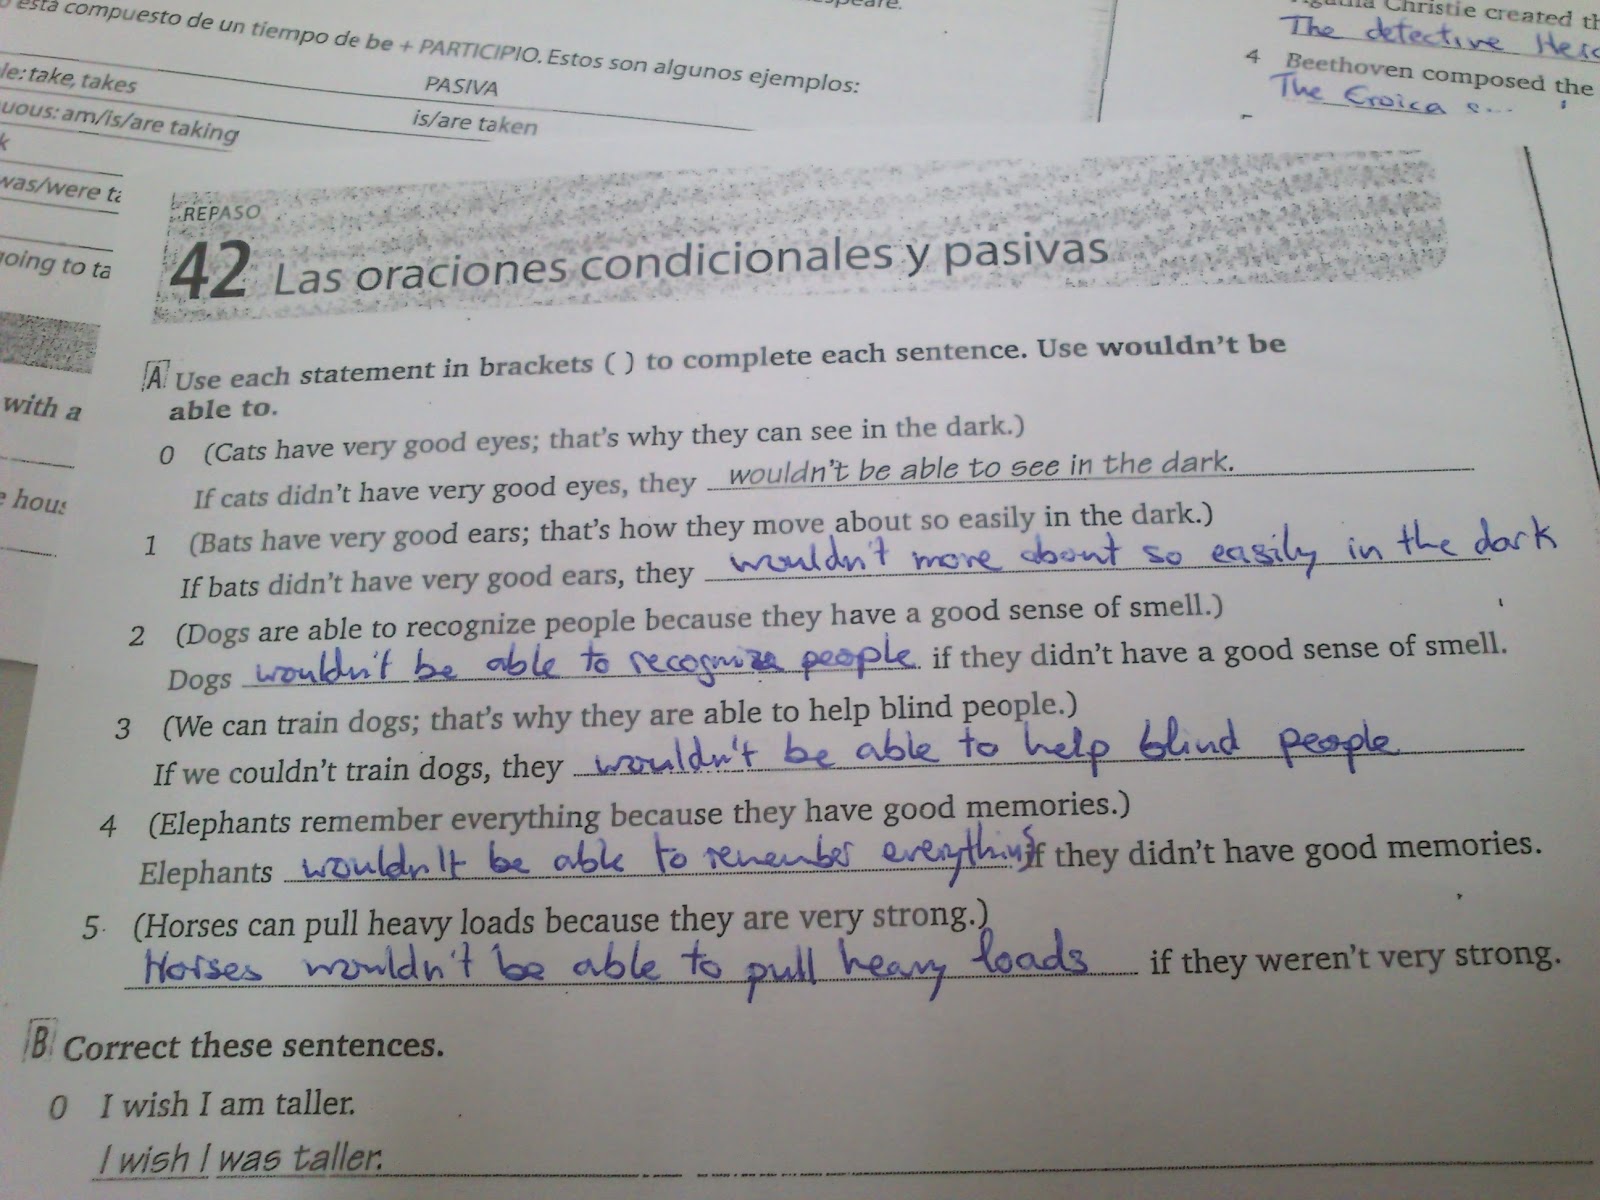 está compuesto de un tiempo de be + PARTICIPIO. Estos son algunos ejemplos:
PASIVA
take, takes
is/are taken
am/is/are taking
was/were
going to
with a
Christie created
The detective
4 Beethoven composed the
The Eroica
REPASO
42 Las oraciones condicionales y pasivas
A Use each statement in brackets ( ) to complete each sentence. Use wouldn't be
able to.
0 (Cats have very good eyes; that's why they can see in the dark.)
If cats didn't have very good eyes, they wouldn't be able to see in the dark.
1 (Bats have very good ears; that's how they move about so easily in the dark.)
If bats didn't have very good ears, they wouldn't move about so easily in the dark
2 (Dogs are able to recognize people because they have a good sense of smell.)
Dogs wouldn't be able to recognize people if they didn't have a good sense of smell.
3 (We can train dogs; that's why they are able to help blind people.)
If we couldn't train dogs, they wouldn't be able to help blind people
4 (Elephants remember everything because they have good memories.)
Elephants wouldn't be able to remember everything if they didn't have good memories.
5 (Horses can pull heavy loads because they are very strong.)
Horses wouldn't be able to pull heavy loads if they weren't very strong.
B Correct these sentences.
0 I wish I am taller.
I wish I was taller.